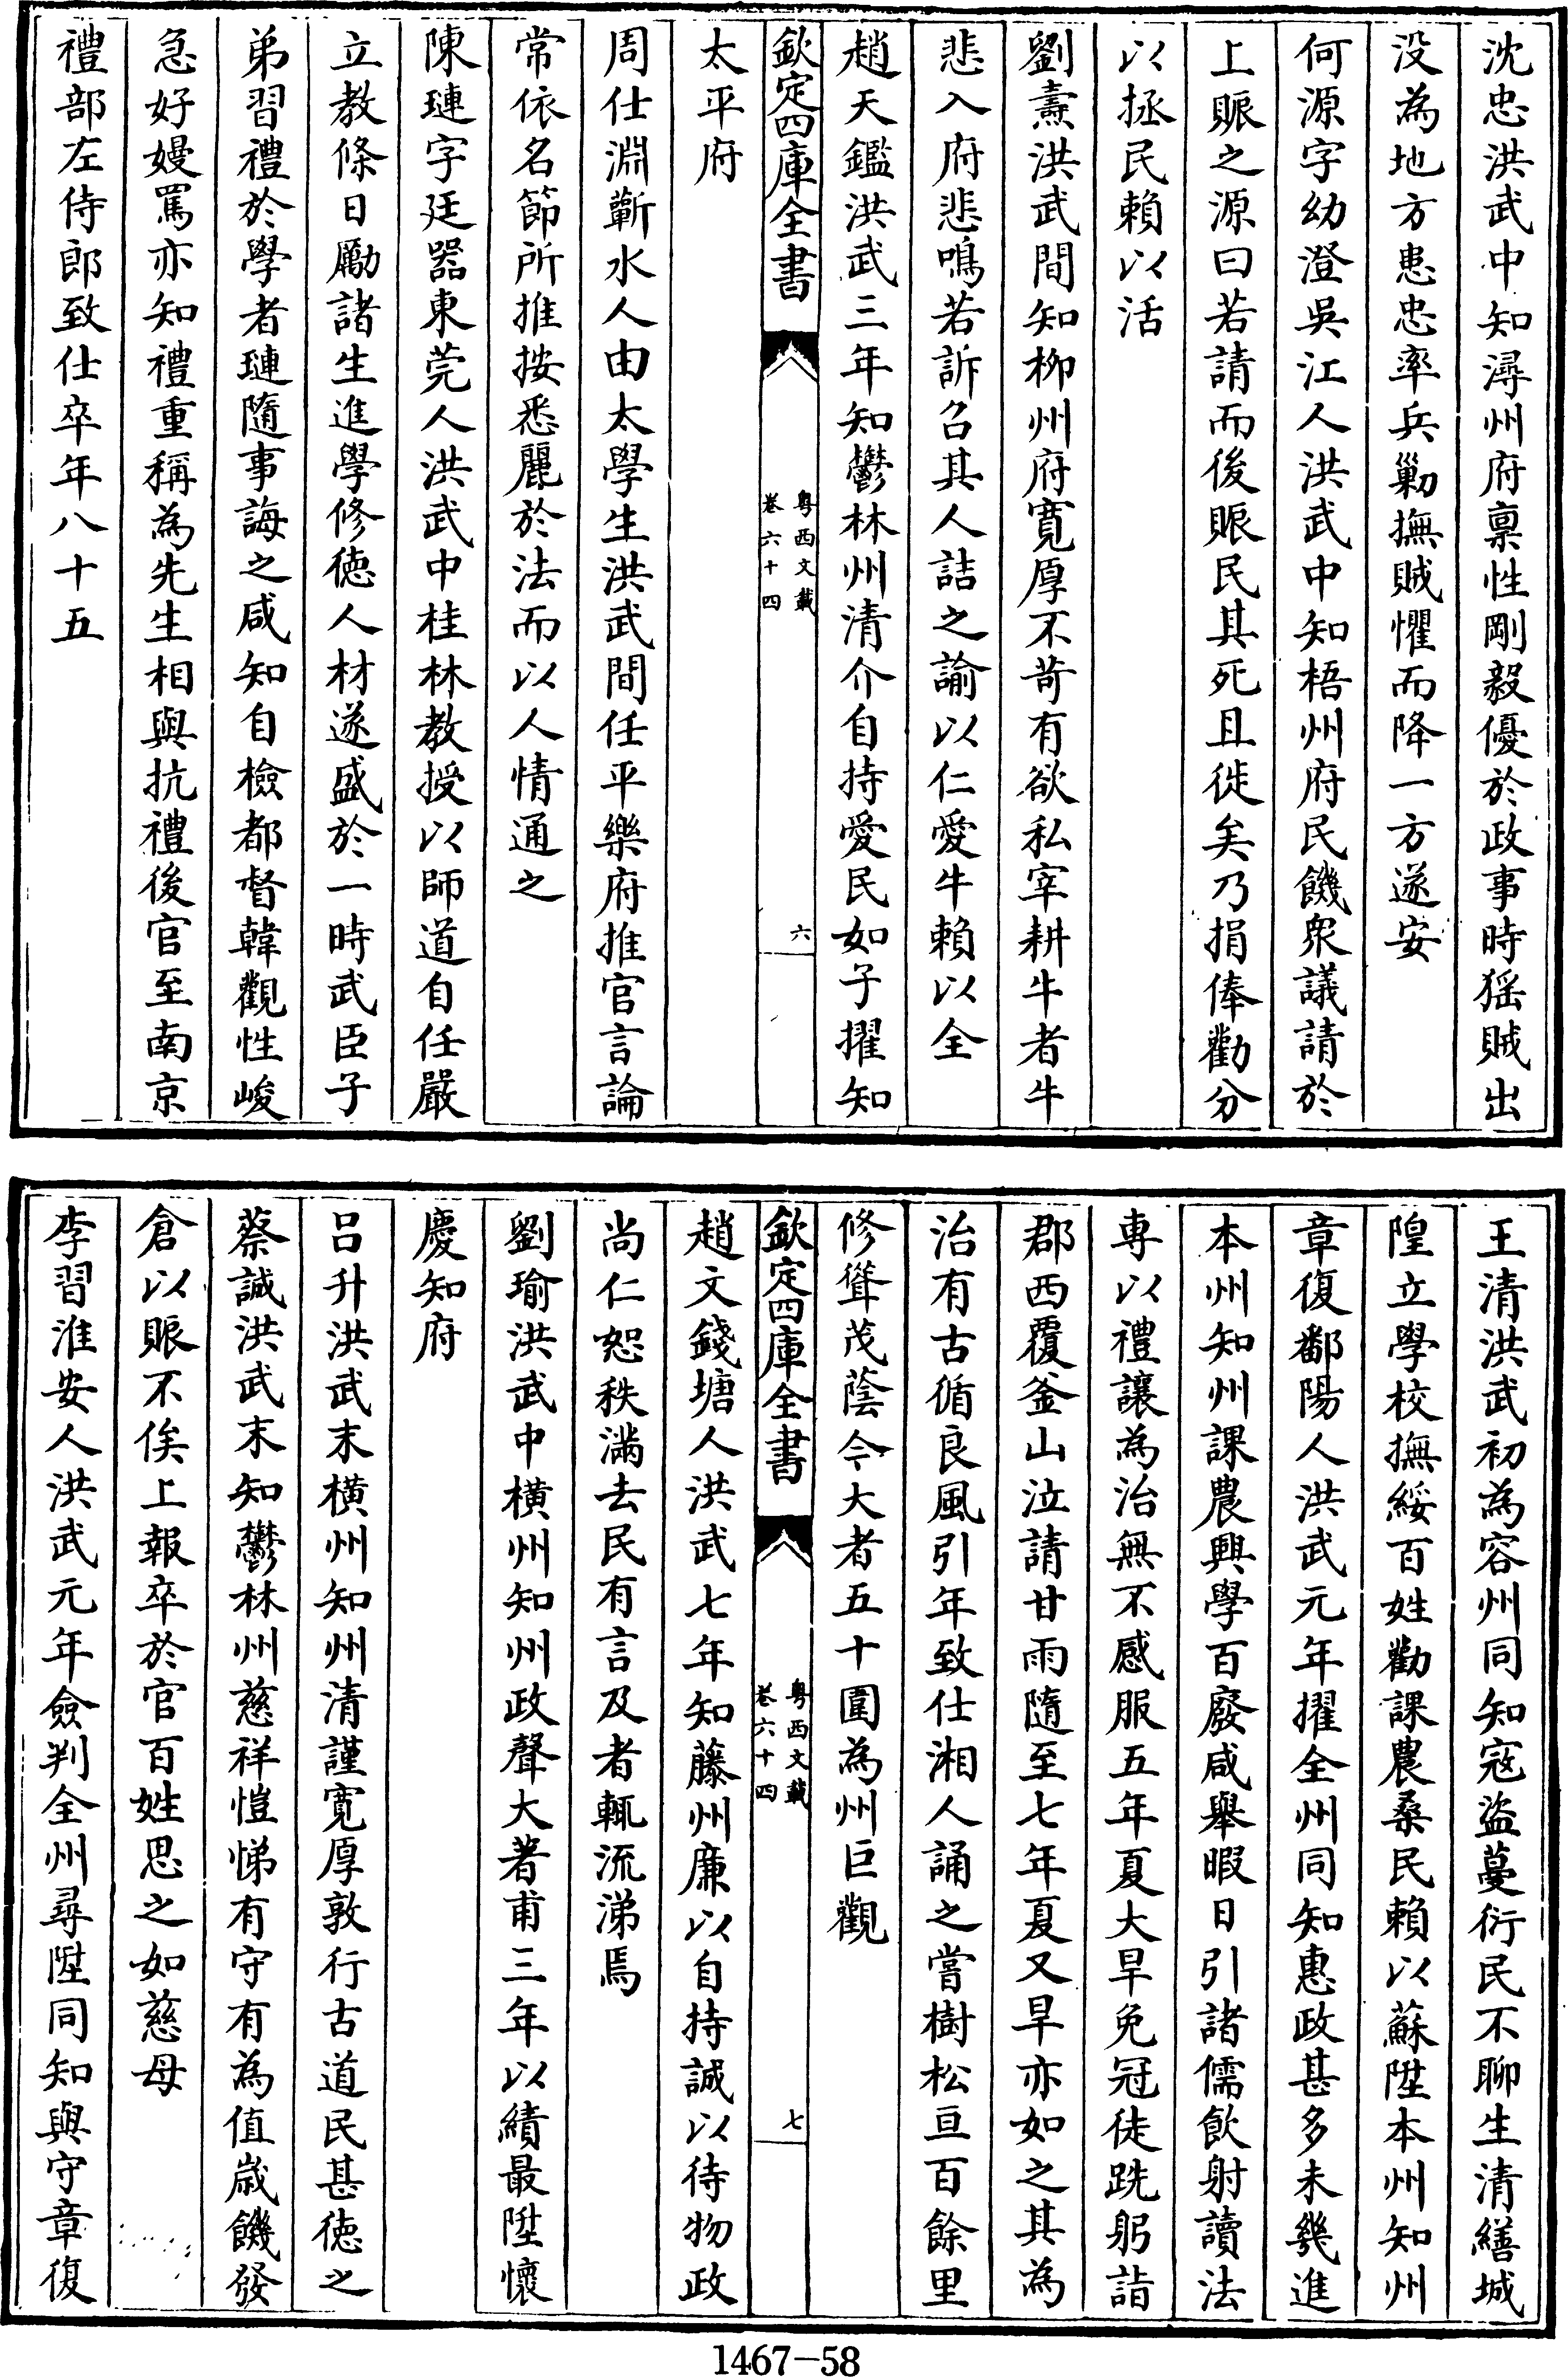 沈忠洪武中知潯州府稟性剛毅優於政事時猺賊出
没為地方患忠率兵勦撫賊懼而降一方遂安
何源字幼澄吳江人洪武中知梧州府民饑衆議請於
上賑之源曰若請而後賑民其死且徙矣乃捐俸勸分
以拯民賴以活
劉燾洪武間知柳州府寛厚不苛有欲私宰耕牛者牛
悲入府悲鳴若訴召其人詰之諭以仁愛牛賴以全
趙天鑑洪武三年知鬱林州清介自持愛民如子擢知
欽定四庫全書
粤西文載
卷六十四
六
太平府
周仕淵蘄水人由太學生洪武間任平樂府推官言論
常依名節所推按悉麗於法而以人情通之
陳璉字廷器東莞人洪武中桂林教授以師道自任嚴
立教條日勵諸生進學修徳人材遂盛於一時武臣子
弟習禮於學者璉隨事誨之咸知自檢都督韓觀性峻
急好嫚罵亦知禮重稱為先生相與抗禮後官至南京
禮部左侍郎致仕卒年八十五
王清洪武初為容州同知宼盜蔓衍民不聊生清繕城
隍立學校撫綏百姓勸課農桑民賴以蘇陞本州知州
章復鄱陽人洪武元年擢全州同知惠政甚多未幾進
本州知州課農興學百廢咸舉暇日引諸儒飲射讀法
専以禮讓為治無不感服五年夏大旱免冠徒跣躬詣
郡西覆釜山泣請甘雨隨至七年夏又旱亦如之其為
治有古循良風引年致仕湘人誦之嘗樹松亘百餘里
修聳茂蔭今大者五十圍為州巨觀
欽定四庫全書
粤西文載
卷六十四
七
趙文錢塘人洪武七年知藤州廉以自持誠以待物政
尚仁恕秩滿去民有言及者輒流涕焉
劉瑜洪武中橫州知州政聲大著甫三年以績最陞懷
慶知府
吕升洪武末橫州知州清謹寛厚敦行古道民甚徳之
蔡誠洪武末知鬱林州慈祥愷悌有守有為值嵗饑發
倉以賑不俟上報卒於官百姓思之如慈母
李習淮安人洪武元年僉判全州尋陞同知與守章復
1467-58